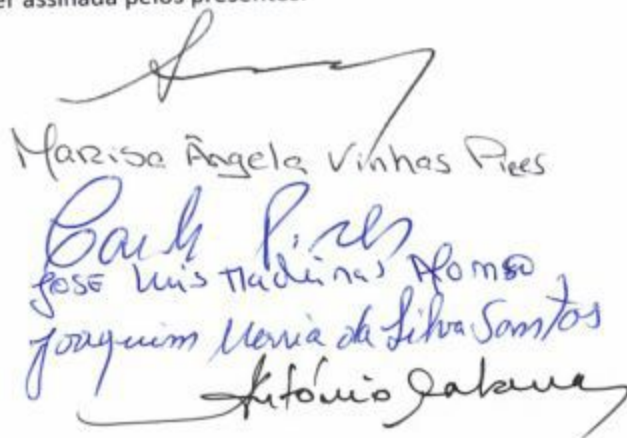 er assinada pelos presentes.
Marisa Ângela Vinhas Pires
Pires
José Luis Madeiras Afonso
Joaquim Maria da Silva Santos
António